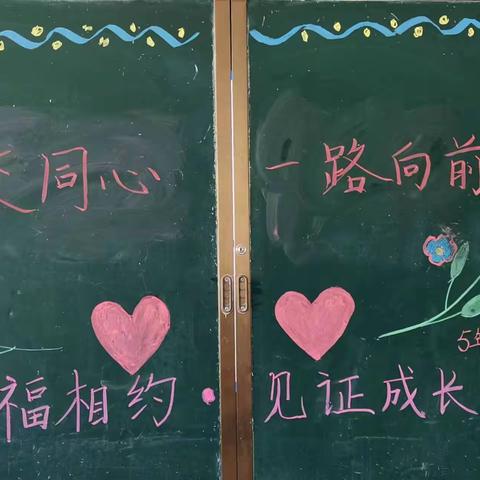 同心 一路向前
5
福相约·见证成长